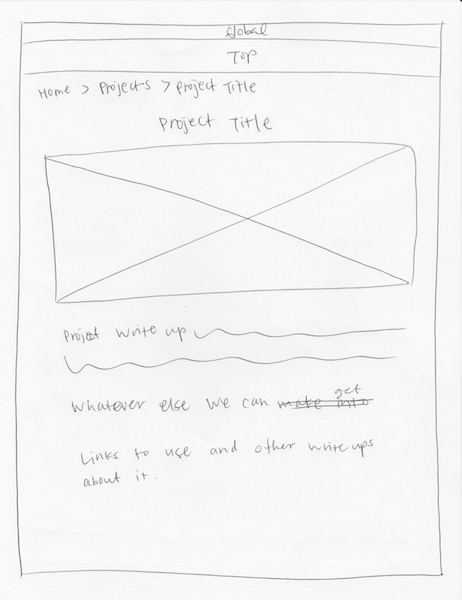 Global
Top
Home > Projects > Project Title
Project Title
Project write up
Whatever else we can make into get
Links to use and other write ups
about it.